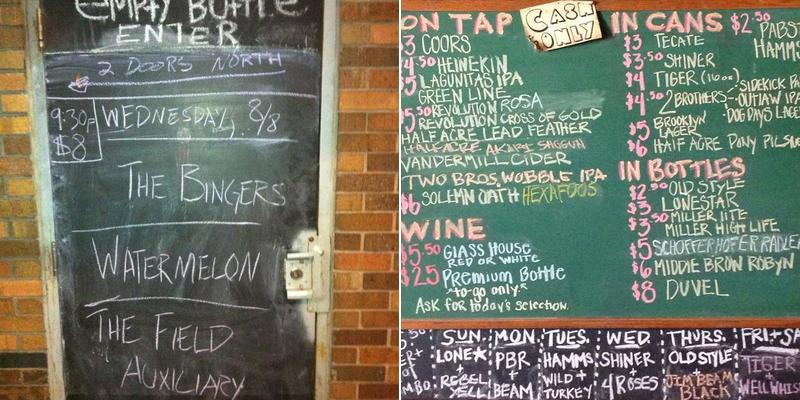 EMPTY BOTTLE
ENTER
2 DOORS NORTH
9:30P
$8
WEDNESDAY, 8/8
THE BINGERS
WATERMELON
THE FIELD
AUXILIARY
ON TAP
CASH
ONLY
$3 COORS
$4.50 HEINEKIN
$5 LAGUNITAS IPA
GREEN LINE
$5.50 REVOLUTION ROSA
REVOLUTION CROSS OF GOLD
HALF ACRE LEAD FEATHER
HALF ACRE AKARI SHOGUN
VANDERMILL CIDER
TWO BROS. WOBBLE IPA
$6 SOLEMN OATH HEXAFOOS
WINE
$5.50 GLASS HOUSE
RED OR WHITE
$25 Premium Bottle
"to-go only."
Ask for today's selection.
IN CANS $2.50 PABST
HAMMS
$3 TECATE
$3.50 SHINER
$4 TIGER (16oz)
$4.50 2 BROTHERS SIDEKICK PA
OUTLAW IPA
DOG DAYS LAGE
$5 BROOKLYN
LAGER
$6 HALF ACRE PONY PILSNE
IN BOTTLES
$2.50 OLD STYLE
$3 LONESTAR
$3.50 MILLER LITE
MILLER HIGH LIFE
$5 SCHOFFERHOFER RADLER
$6 MIDDLE BROW ROBYN
$8 DUVEL
SUN. MON. TUES. WED. THURS. FRI+SA
LONE★ PBR HAMMS SHINER OLD STYLE TIGER
+ + + + + +
REBEL YELL BEAM WILD TURKEY 4 ROSES JIM BEAM BLACK WELL WHIS